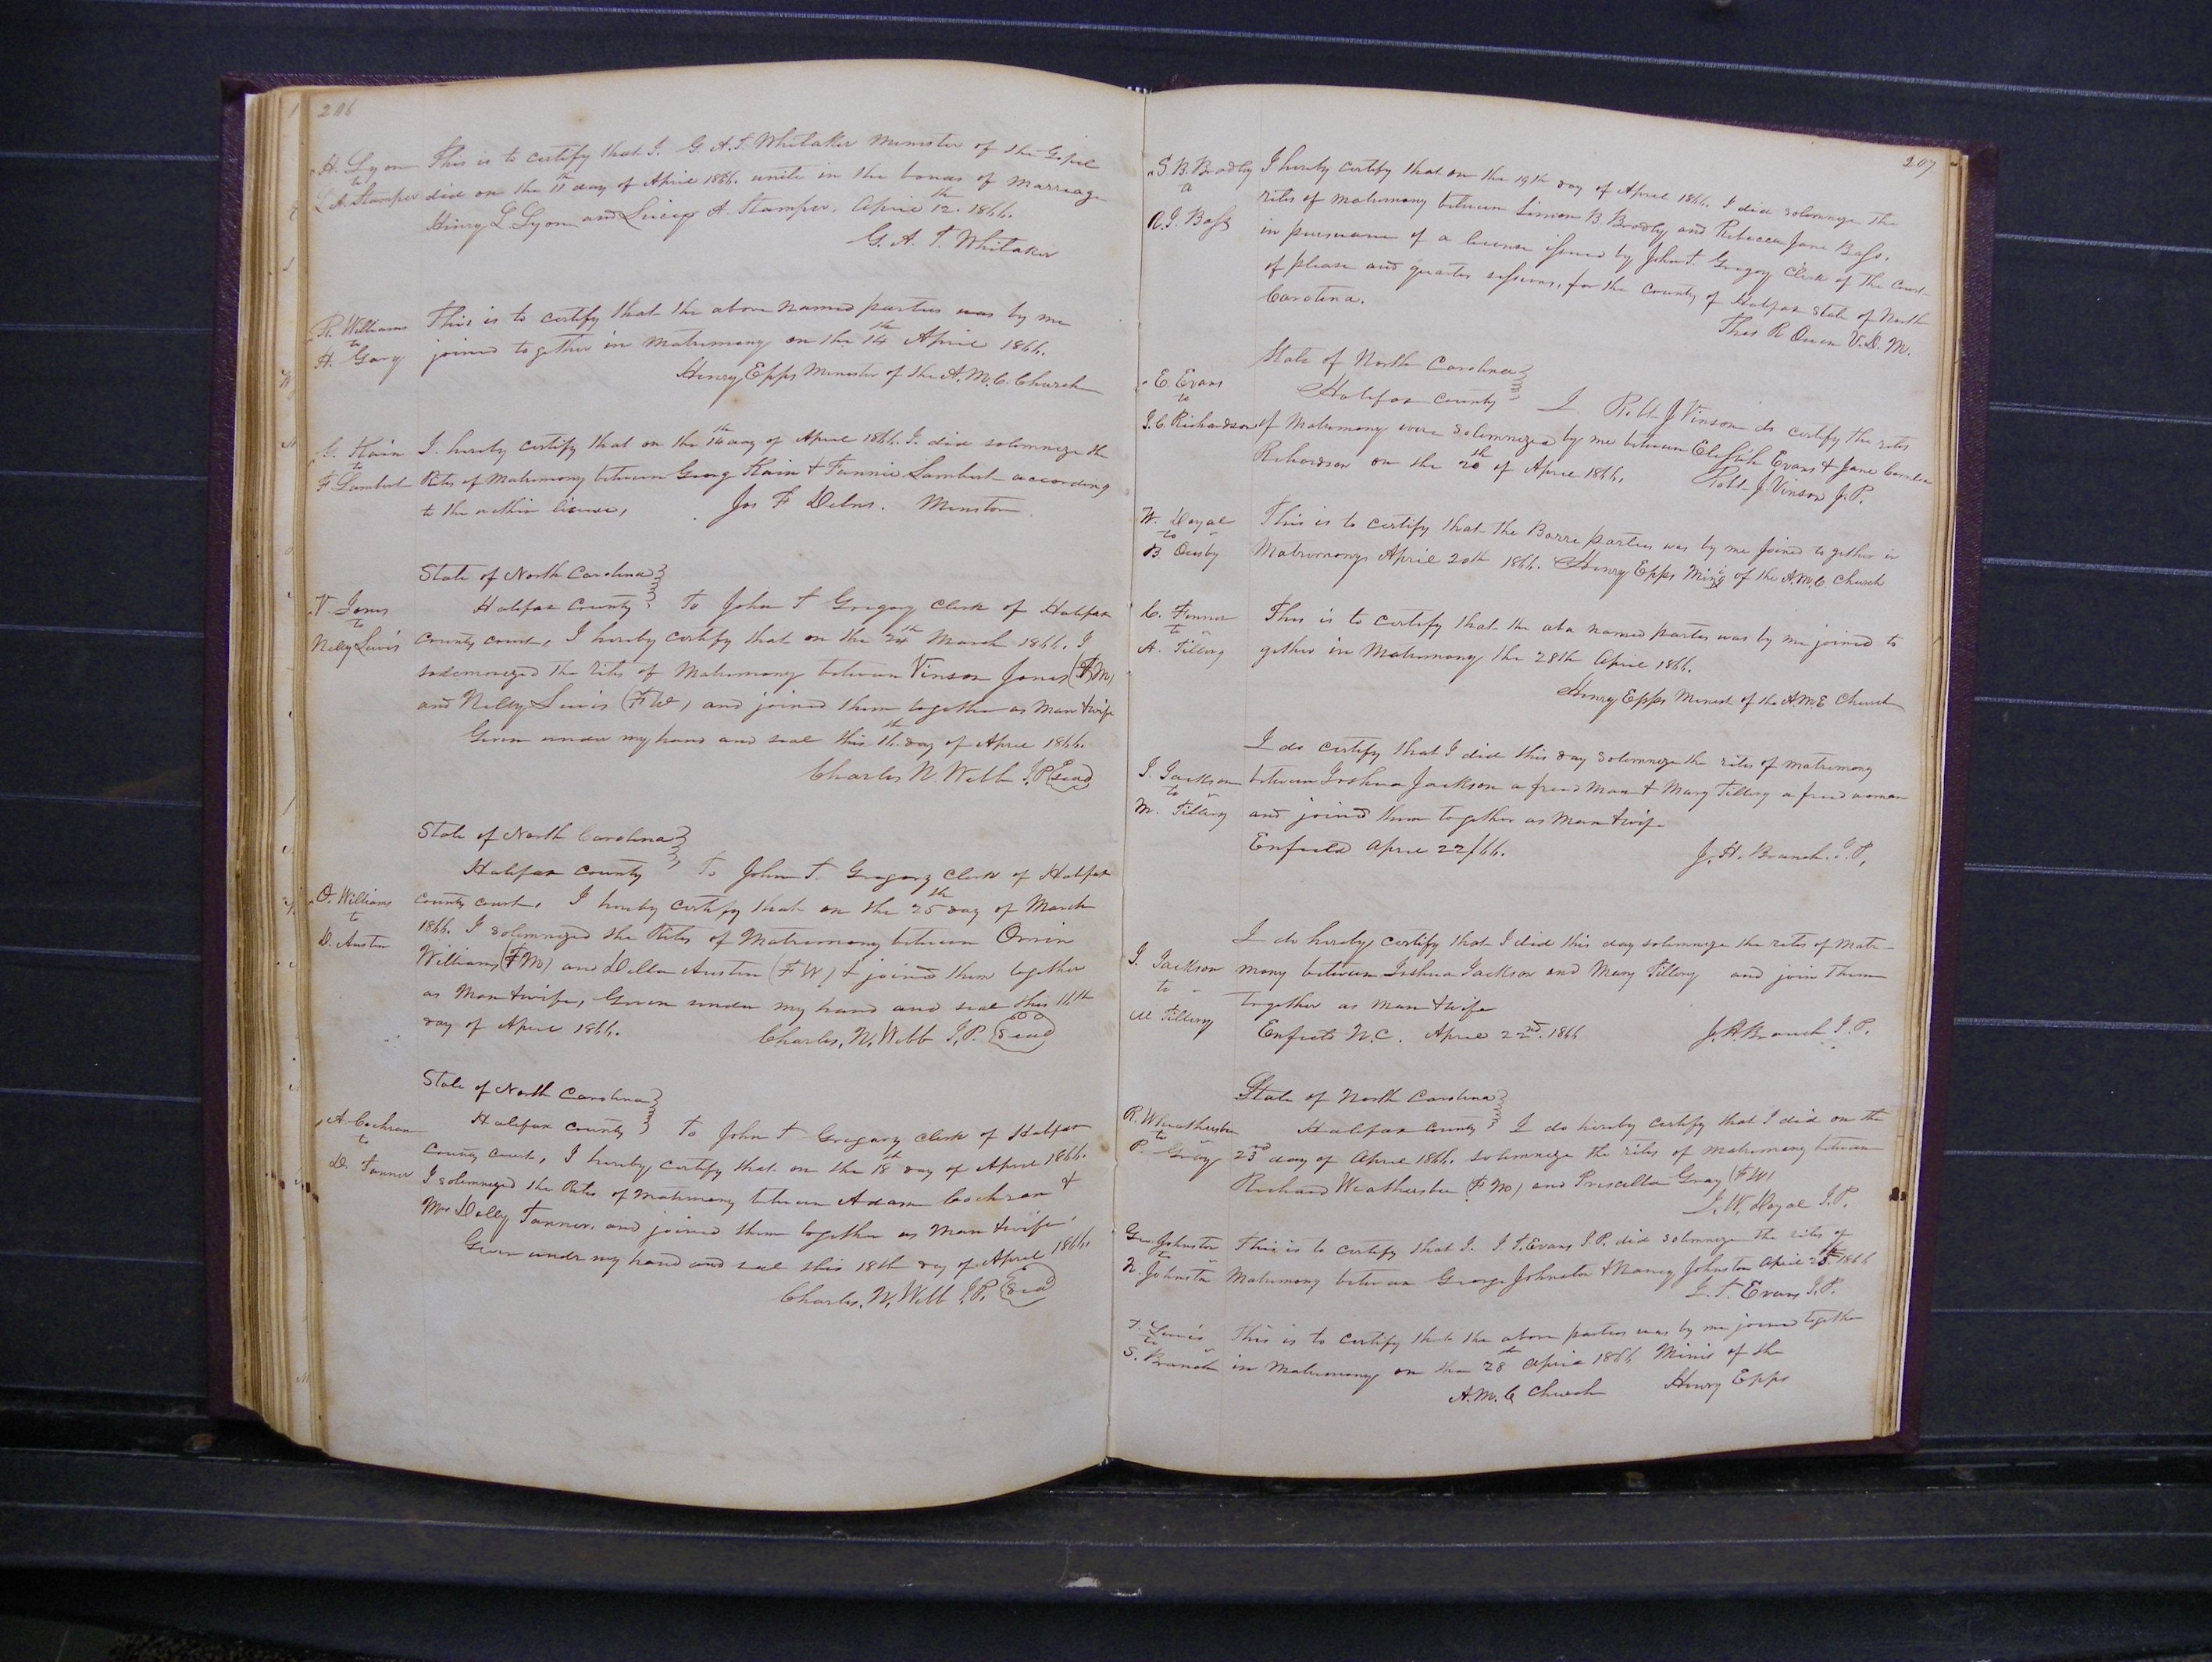 206
H. Lyon This is to certify that I. G. A. T. Whitaker Minister of the Gospel
to
L A. Stamper did on the 11th day of April 1866. unite in the bonds of Marriage
Henry L. Lyon and A. Stamper. April 12th. 1866.
G. A. T. Whitaker
R. Williams This is to certify that the above named parties was by me
to
H. Gary joined together in Matrimony on the 14th April 1866.
Henry Epps Minister of the A. M. E. Church
G. Kain I. hereby certify that on the 14th day of April 1866. I. did solemnize the
to
F Lambert Rites of Matrimony between Georg Kain & Fannie Lambert according
to the within license, Jos F Minister
State of North Carolina
V. Jones Halifax County To John T Gregory Clerk of Halifax
to
Nelly Lewis County court, I hereby certify that on the 24th March 1866. I
solemnized the rites of Matrimony between Vinson Jones (FM)
and Nelly Lewis (FW) and joined them together as Man & wife
Given under my hand and seal this 16th day of April 1866.
Charles N. Webb J.P. Seal
State of North Carolina
Halifax County To John T. Gregory Clerk of Halifax
O. Williams County court. I hereby certify that on the 25th day of March
to
D. Austin 1866. I solemnized the Rites of Matrimony between Orrin
Williams (FM) and Della Austin (FW) & joined them together
as Man & wife, Given under my hand and seal this 16th
day of April 1866. Charles. N. Webb J.P. Seal
State of North Carolina
A. Cochran Halifax County To John T Gregory Clerk of Halifax
to
County Court, I hereby certify that on the 18th day of April 1866.
D. Tanner I solemnized the Rites of Matrimony between Adam Cochran &
Mrs Delly Tanner. and joined them together as Man & wife,
Given under my hand and seal this 18th day of April 1866.
Charles. N. Webb J.P. Seal
207
S. B. Bradly I hereby certify that on the 19th day of April 1866. I did solemnize the
a
rites of matrimony between Simon B. Bradly and Rebecca Jane Bass,
R. J. Bass in pursuance of a license issued by John T. Gregory Clerk of the Court
of please and quarter sessions, for the County of Halifax State of North
Carolina.
Thos R Owen V. D. M.
State of North Carolina
E. Evans Halifax County I Robt J Vinson do certify the rites
to
J. C. Richardson of Matrimony were solemnized by me between Evans & Jane
Richardson on the 20th of April 1866. Robt J. Vinson J.P.
W. Doyal This is to certify that the parties was by me joined to gether in
to
B. Matrimony April 20th 1866. Henry Epps of the A.M.E Church
C. Fenner This is to certify that the named parties was by me joined to
to
A. Tillery gether in Matrimony the 28th April 1866.
Henry Epps Minist of the A.M.E Church
I do certify that I did this day solemnize the rites of matrimony
J. Jackson between Joshua Jackson a freed man & Mary Tillery a freed woman
to
M. Tillery and joined them together as Man & wife
Enfield April 22/66. J. H. Branch J.P,
I do hereby certify that I did this day solemnize the rites of Matri-
J. Jackson mony between Joshua Jackson and Mary Tillery and join them
to
M Tillery together as man & wife
Enfield N.C. April 22nd. 1866 J. H. Branch J.P.
State of North Carolina
R. Wheathersbee Halifax County I do hereby certify that I did on the
to
P. Gray 23rd day of April 1866. solemnize the rites of matrimony between
Richard Weathersbee (FM) and Priscilla Gray (FW)
J. W. Doyal J.P.
Geo. Johnston This is to certify that I. J. T. Evans J.P. did solemnize the rites of
to
N. Johnston Matrimony between George Johnston & Nancy Johnston April 1866
J. T. Evans J.P.
Lewis This is to certify that the above parties was by me joined together
to
S. Branch in Matrimony on the 28th April 1866 Minis of the
A.M.E Church Henry Epps